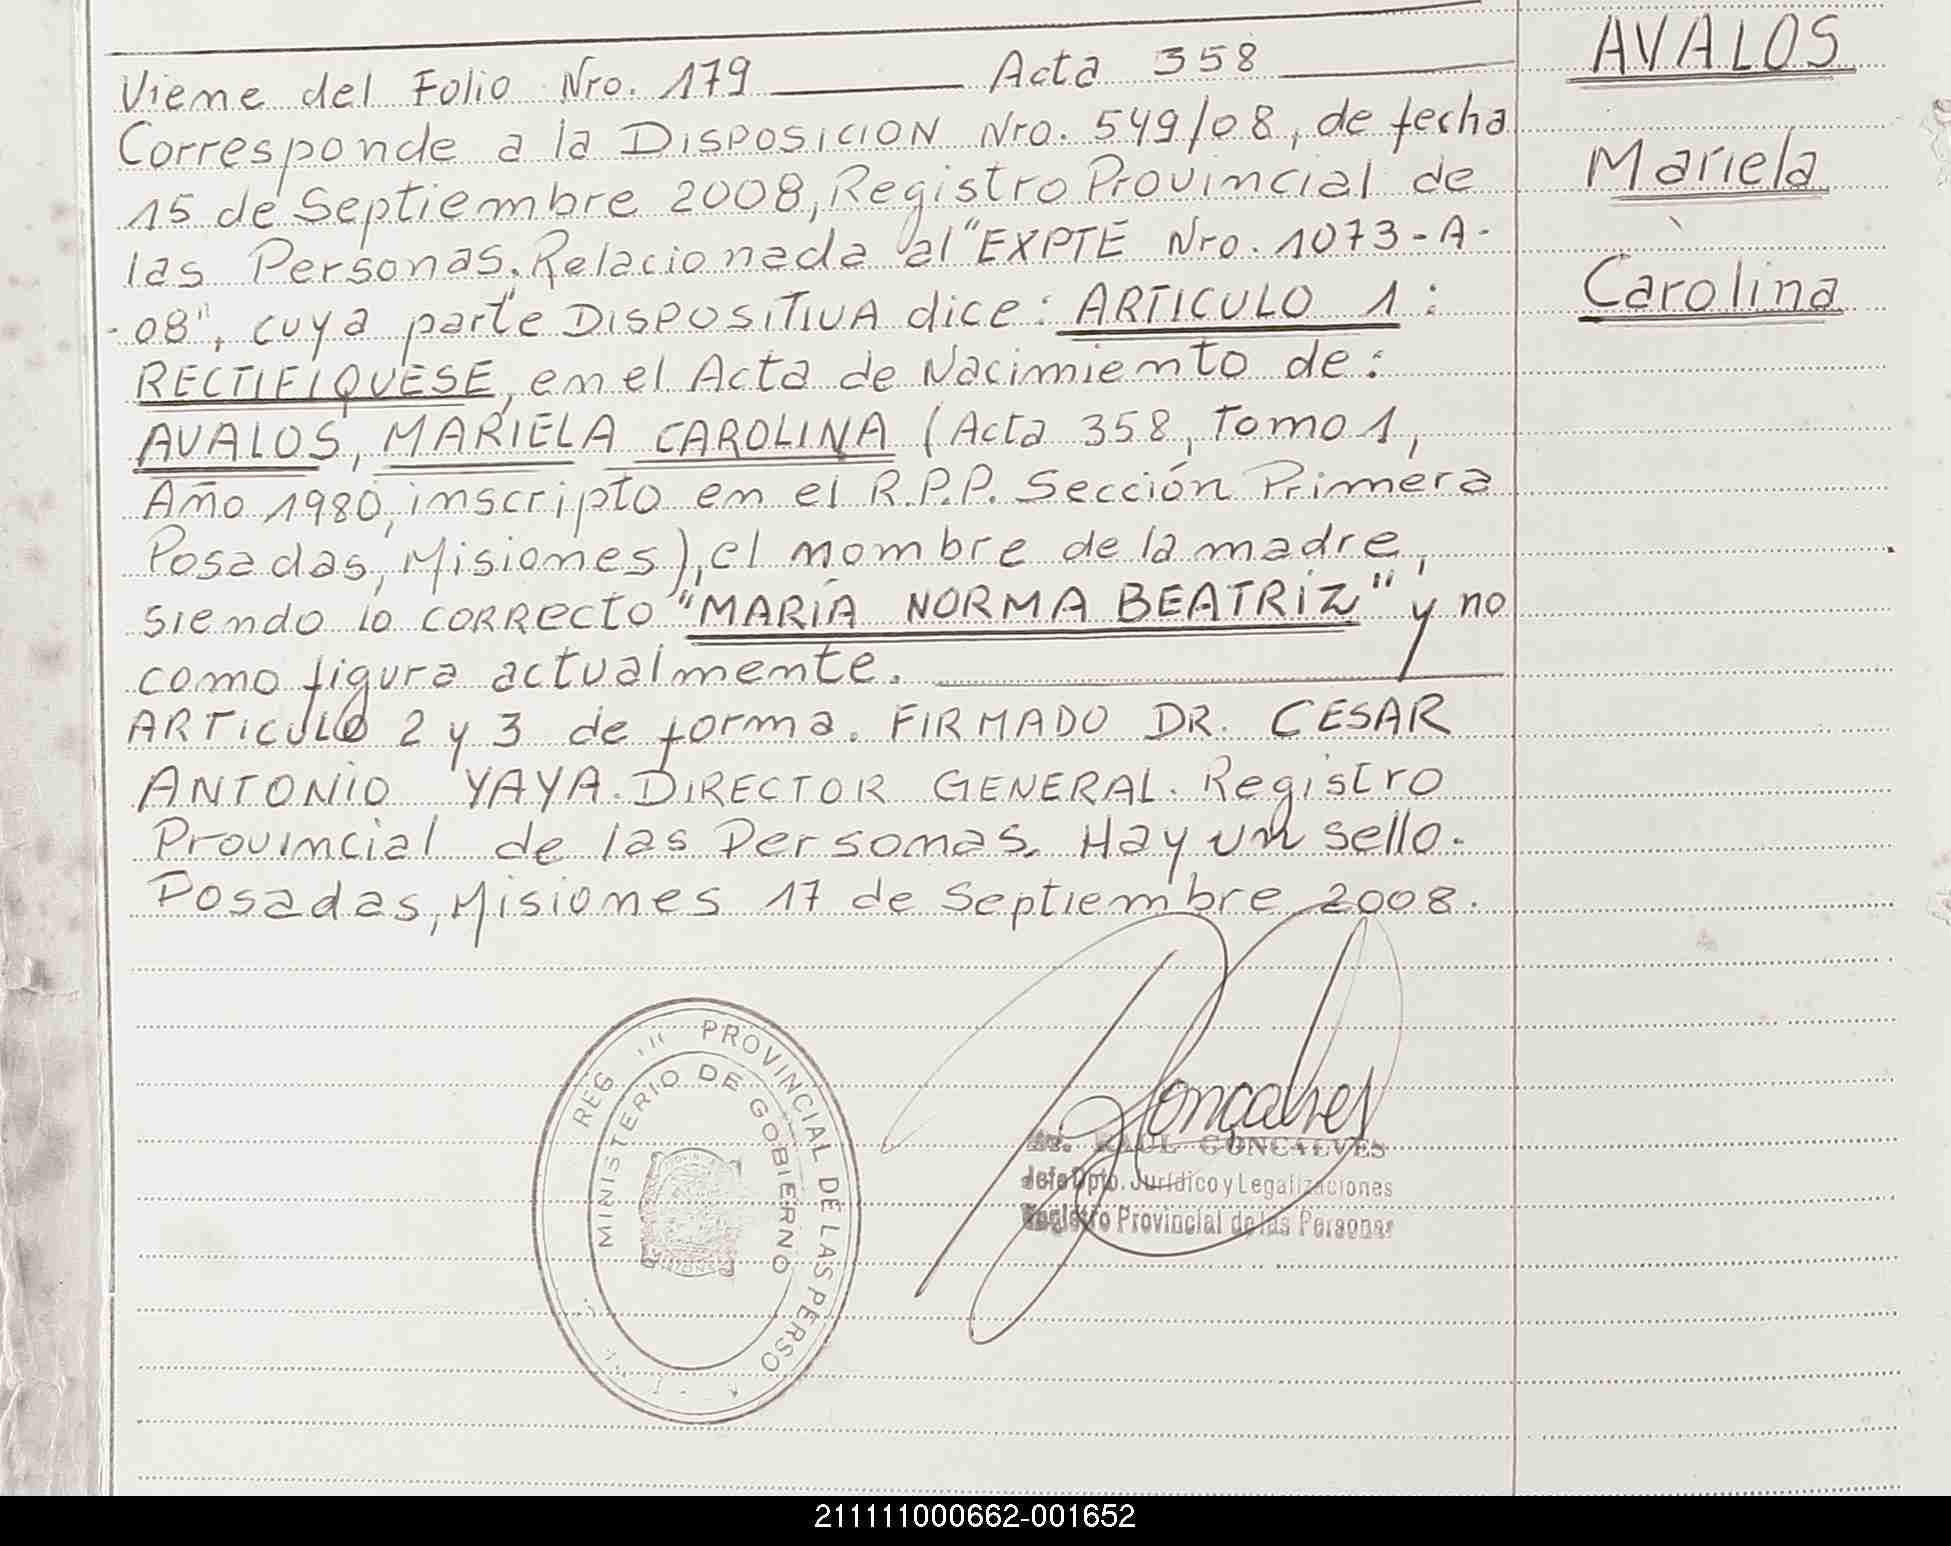 Viene del Folio Nro. 179 Acta 358
Corresponde a la DISPOSICION Nro. 549/08, de fecha
15 de Septiembre 2008, Registro Provincial de
las Personas. Relacionada al "EXPTE Nro. 1073-A-
-08", cuya parte DISPOSITIVA dice: ARTICULO 1:
RECTIFIQUESE, en el Acta de Nacimiento de:
AVALOS, MARIELA CAROLINA (Acta 358, Tomo 1,
Año 1980, inscripto en el R.P.P. Sección Primera
Posadas, Misiones), el nombre de la madre,
siendo lo correcto "MARÍA NORMA BEATRIZ" y no
como figura actualmente.
ARTICULO 2 y 3 de forma. FIRMADO DR. CESAR
ANTONIO YAYA. DIRECTOR GENERAL. Registro
Provincial de las Personas. Hay un sello.
Posadas, Misiones 17 de Septiembre 2008.
AVALOS
Mariela
Carolina
REG PROVINCIAL DE LAS PERSO
MINISTERIO DE GOBIERNO
Gonçalves
RAUL GONCALVES
Jefe Dpto. Jurídico y Legalizaciones
Registro Provincial de las Personas
211111000662-001652